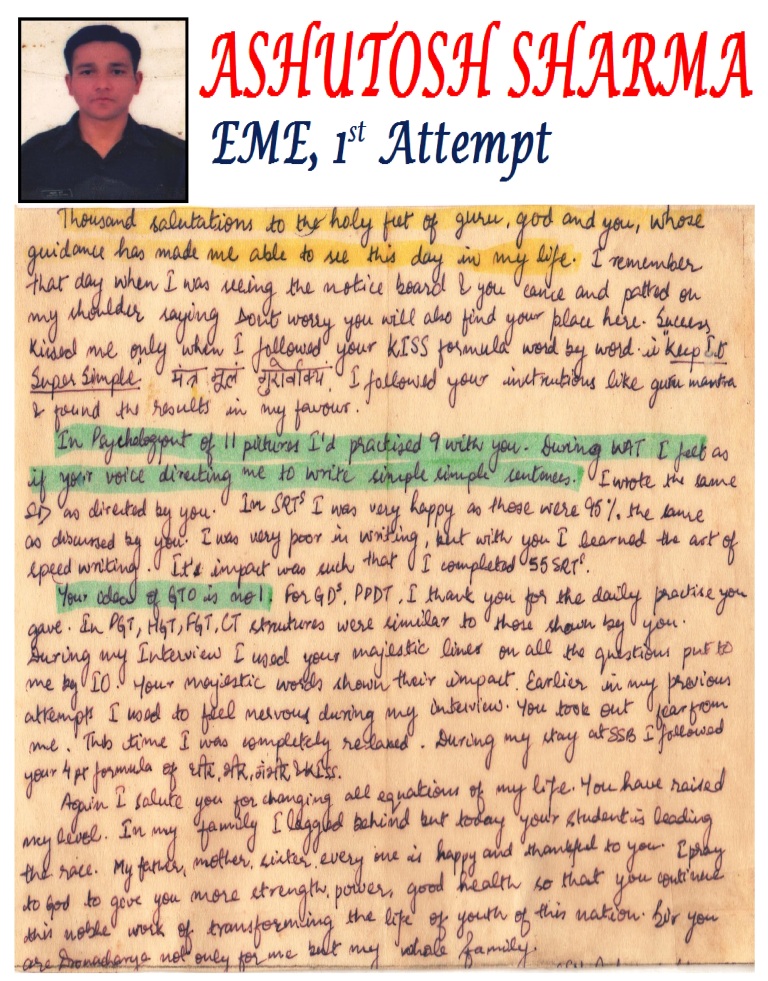 ASHUTOSH SHARMA
EME, 1st Attempt
Thousand salutations to the holy feet of guru, god and you, whose
guidance has made me able to see this day in my life. I remember
that day when I was seeing the notice board & you came and patted on
my shoulder saying Dont worry you will also find your place here. Success
kissed me only when I followed your KISS formula word by word. ie "Keep It
Super Simple". मंत्र मूलं गुरुर्वाक्यं. I followed your instructions like guru mantra
& found the results in my favour.
In Psychology out of 11 pictures I'd practised 9 with you. During WAT I felt as
if your voice directing me to write simple simple sentences. I wrote the same
SD as directed by you. In SRTs I was very happy as those were 95% the same
as discussed by you. I was very poor in writing, but with you I learned the art of
speed writing. It's impact was such that I completed 55 SRTs.
Your idea of GTO is no1. For GDs, PPDT, I thank you for the daily practise you
gave. In PGT, HGT, FGT, CT strutures were similar to those shown by you.
During my Interview I used your majestic lines on all the questions put to
me by IO. Your majestic words shown their impact. Earlier in my previous
attempts I used to feel nervous during my interview. You took out fear from
me. This time I was completely relaxed. During my stay at SSB I followed
your 4 pt formula of & KISS.
Again I salute you for changing all equations of my life. You have raised
my level. In my family I lagged behind but today your student is leading
the race. My father, mother, sister every one is happy and thankful to you. I pray
to God to give you more strength, power, good health so that you continue
this noble work of transforming the life of youth of this nation. Sir you
are Dronacharya not only for me but my whole family.